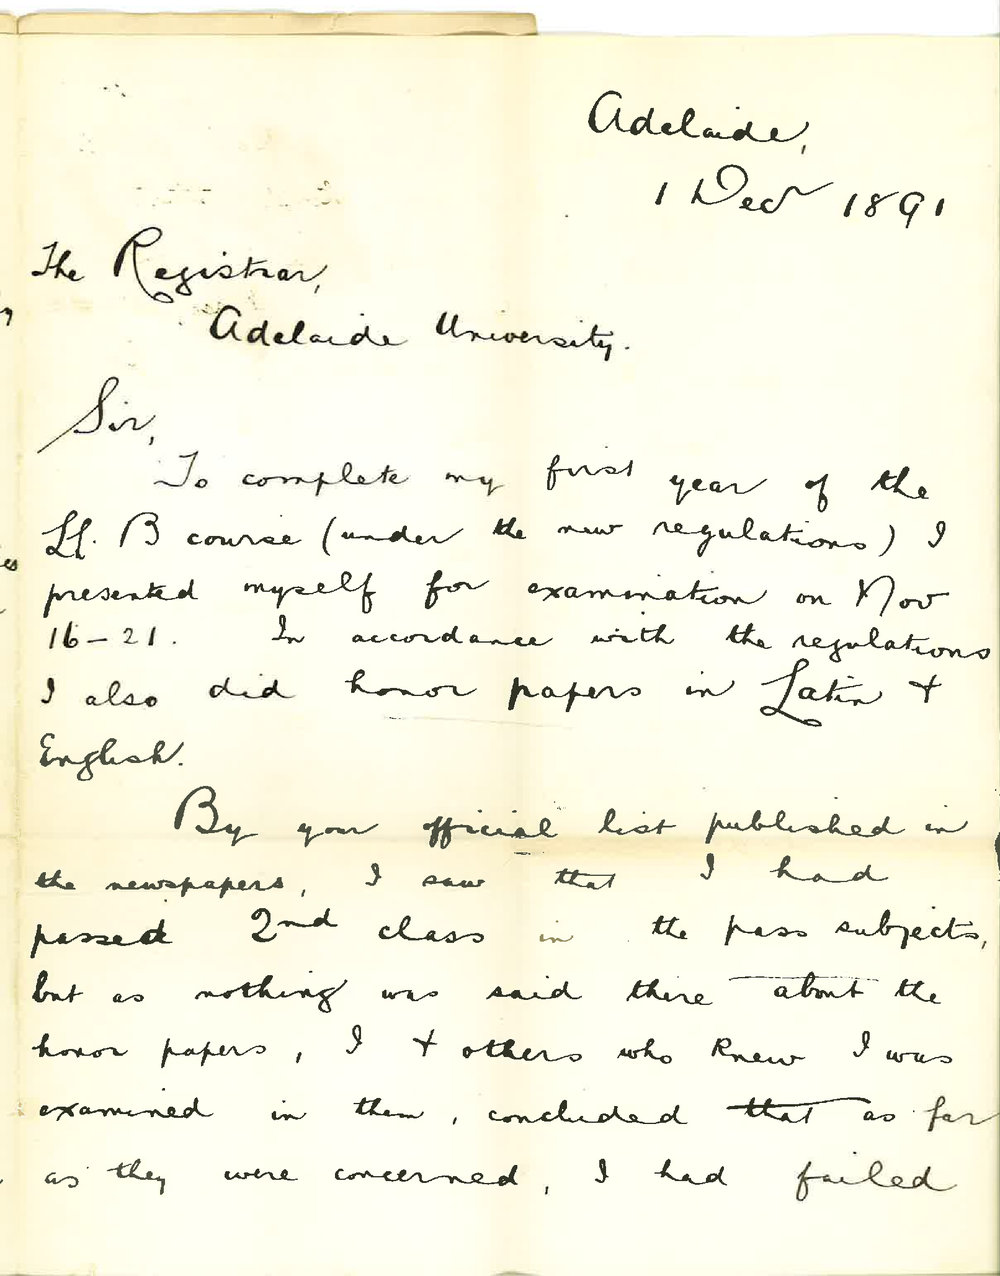 Adelaide,
1 Decr 1891
The Registrar,
Adelaide University.
Sir,
To complete my first year of the
Ll. B course (under the new regulations) I
presented myself for examination on Nov
16-21. In accordance with the regulations
I also did honor papers in Latin +
English.
By your official list published in
the newspapers, I saw that I had
passed 2nd class in the pass subjects,
but as nothing was said there about the
honor papers, I + others who knew I was
examined in them, concluded that as far
as they were concerned, I had failed